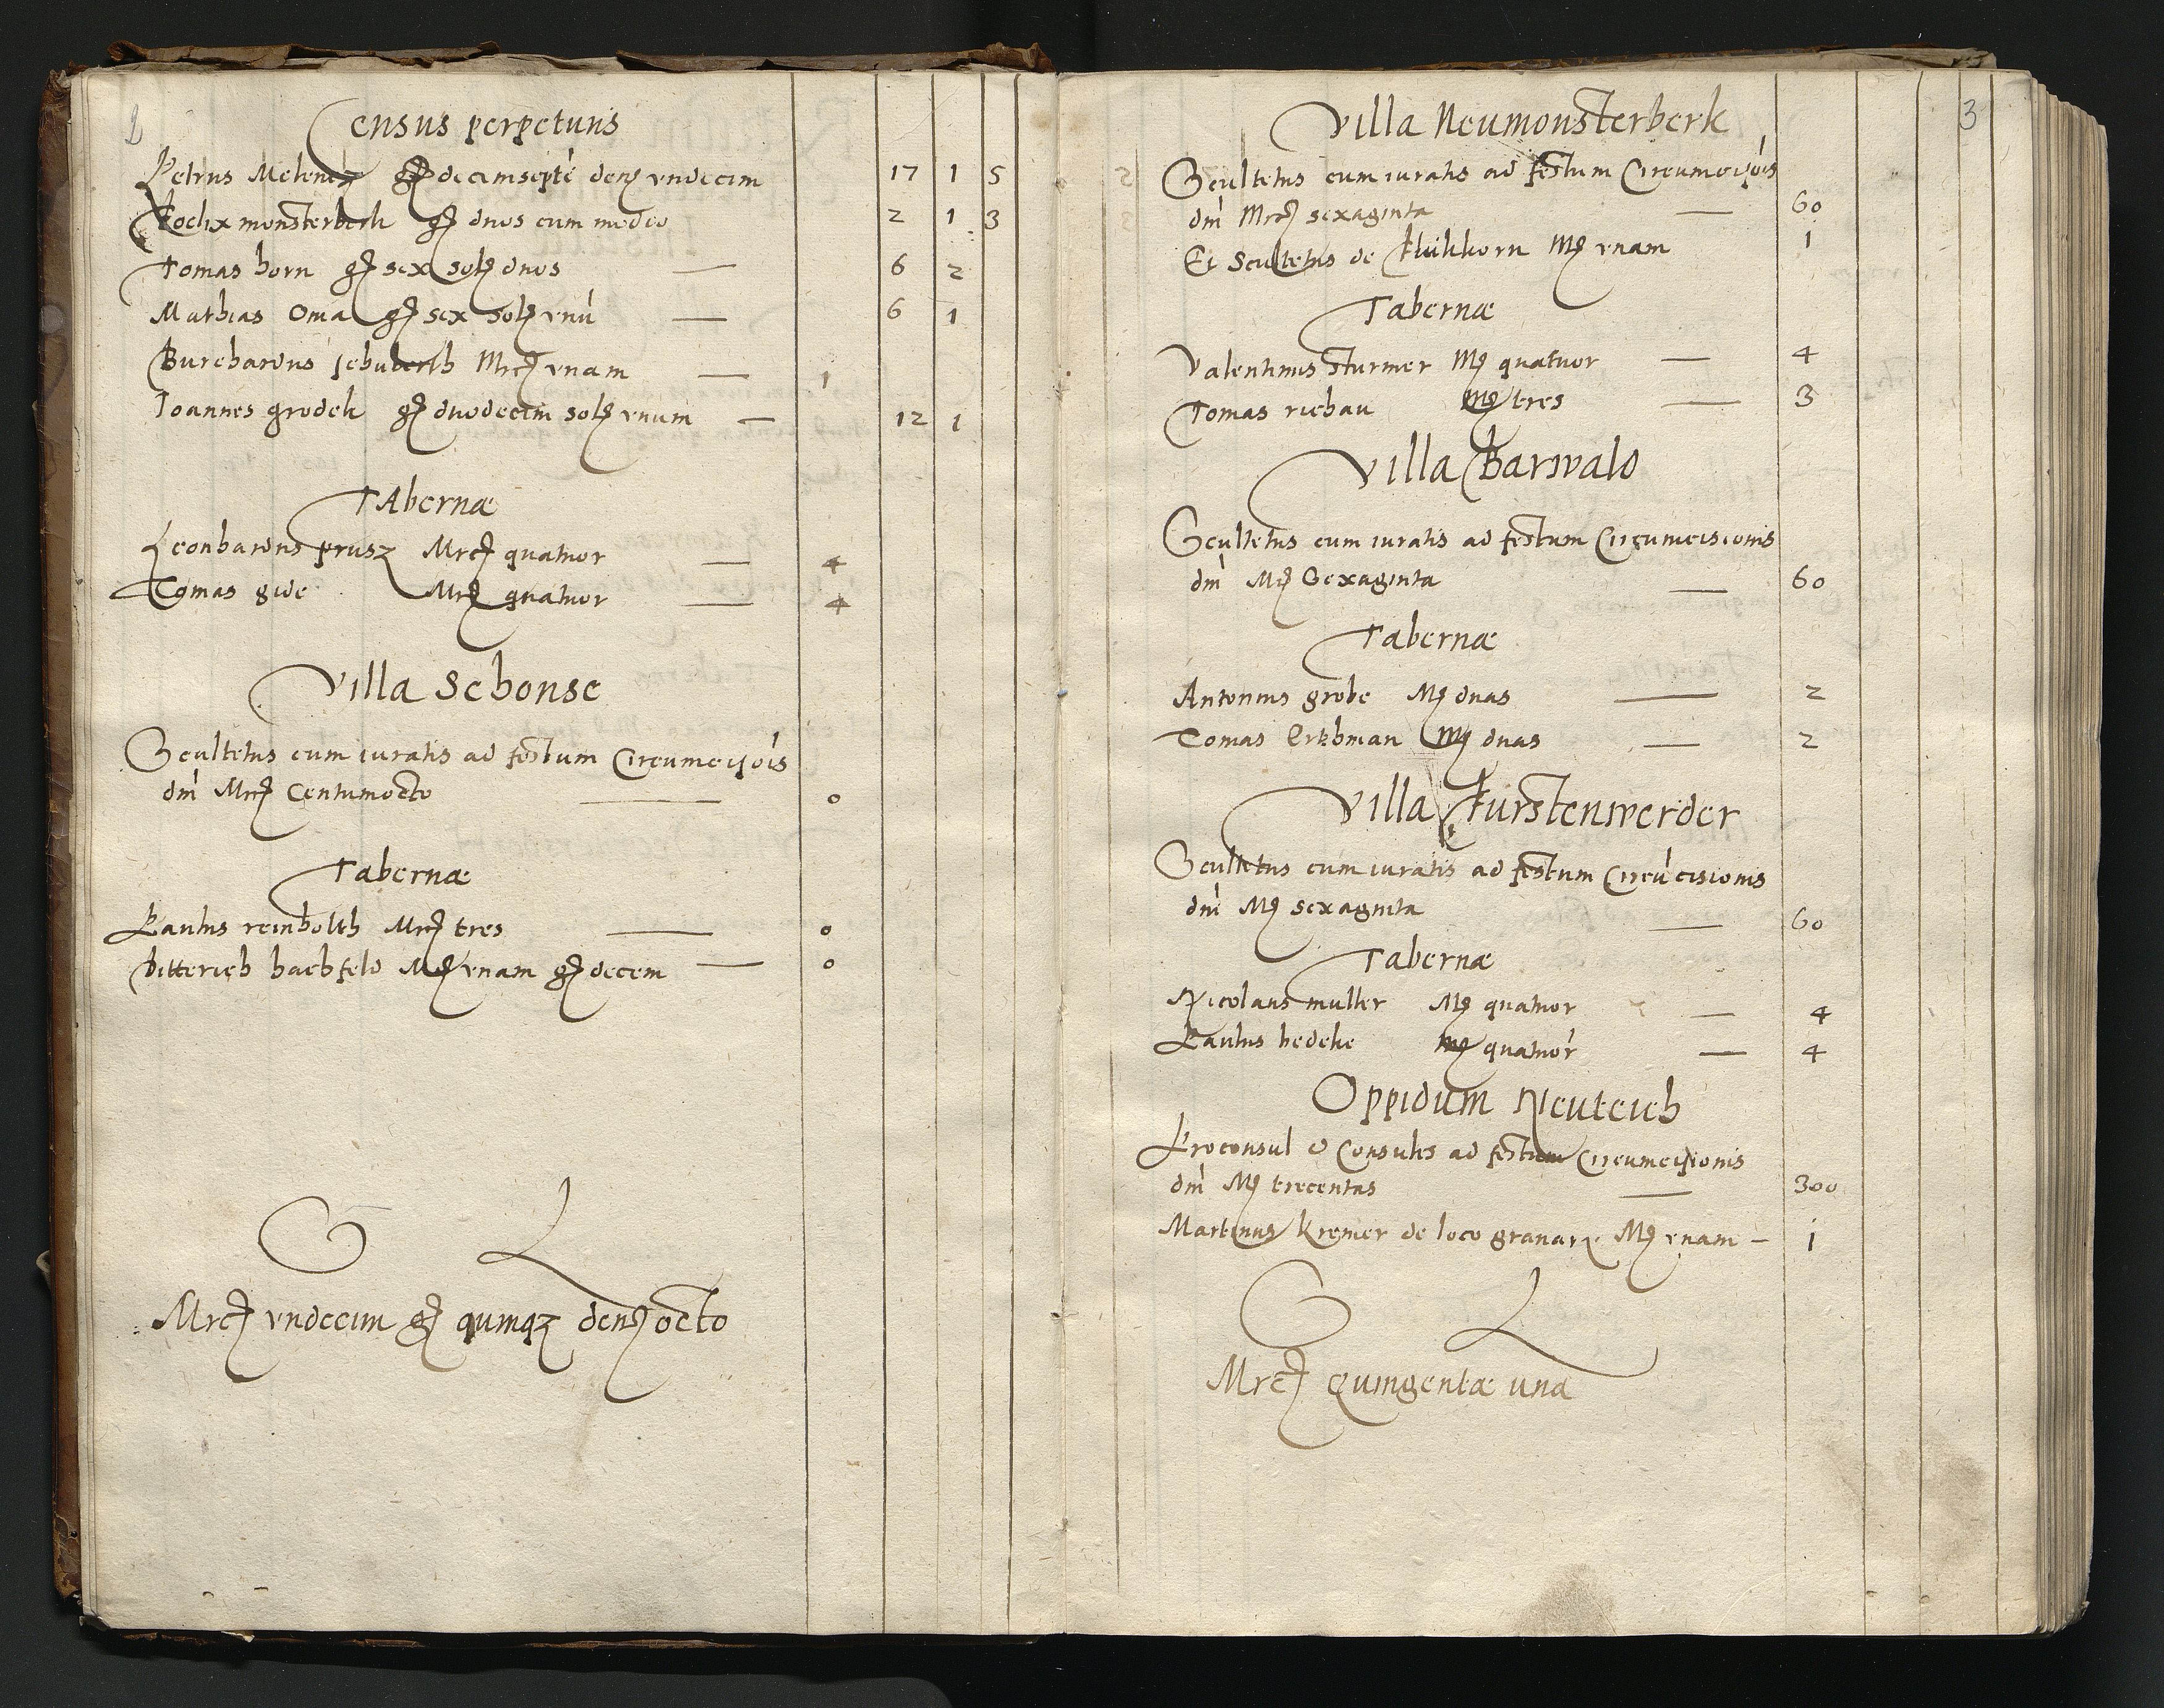 2
Census perpetuus
Petrus Melentz gȝ decimseptē denȝ undecim 17 1 5
Foelix monsterberk gȝ duos cum medio 2 1 3
Tomas horn gȝ sex solȝ duos — 6 2
Mathias Oma gȝ sex solȝ unū — 6 1
Burchardus schuberth Mrcȝ unam — 1
Ioannes grodek gȝ duodecim solȝ unum — 12 1
TAbernæ
Leonhardus prusz Mrcȝ quatuor — 4
Tomas gide Mrcȝ quatuor — 4
Villa Schonse
Scultetus cum iuratis ad festum Circumcisiōis
dnī Mrcȝ Centumocto — 0
Tabernæ
Paulus reinholth Mrcȝ tres — 0
Ditterich hachfeld Mrcȝ unam gȝ decem — 0
S L
Mrcȝ undecim gȝ quinqȝ denȝ octo
3
Villa Neumonsterberk
Scultetus cum iuratis ad festum Circumcisiōis
dnī Mrcȝ sexaginta — 60
Et Scultetus de Mȝ unam 1
Tabernæ
Valentinus sturmer Mȝ quatuor — 4
Tomas riebau Mȝ tres — 3
Villa Barwald
Scultetus cum iuratis ad festum Circumcisionis
dnī Mrȝ Sexaginta — 60
Tabernæ
Antonius grobe Mȝ duas — 2
Tomas Mȝ duas — 2
Villa Furstenwerder
Scultetus cum iuratis ad festum Circūcisionis
dnī Mȝ sexaginta — 60
Tabernæ
Nicolaus muller Mȝ quatuor — 4
Paulus hedeke Mȝ quatuor — 4
Oppidum Neuteich
Proconsul & Consules ad festum Circumcisionis
dnī Mȝ trecentas — 300
Martinus Kremer de loco granarȝ Mȝ unam – 1
S L
Mrcȝ Quingentæ una